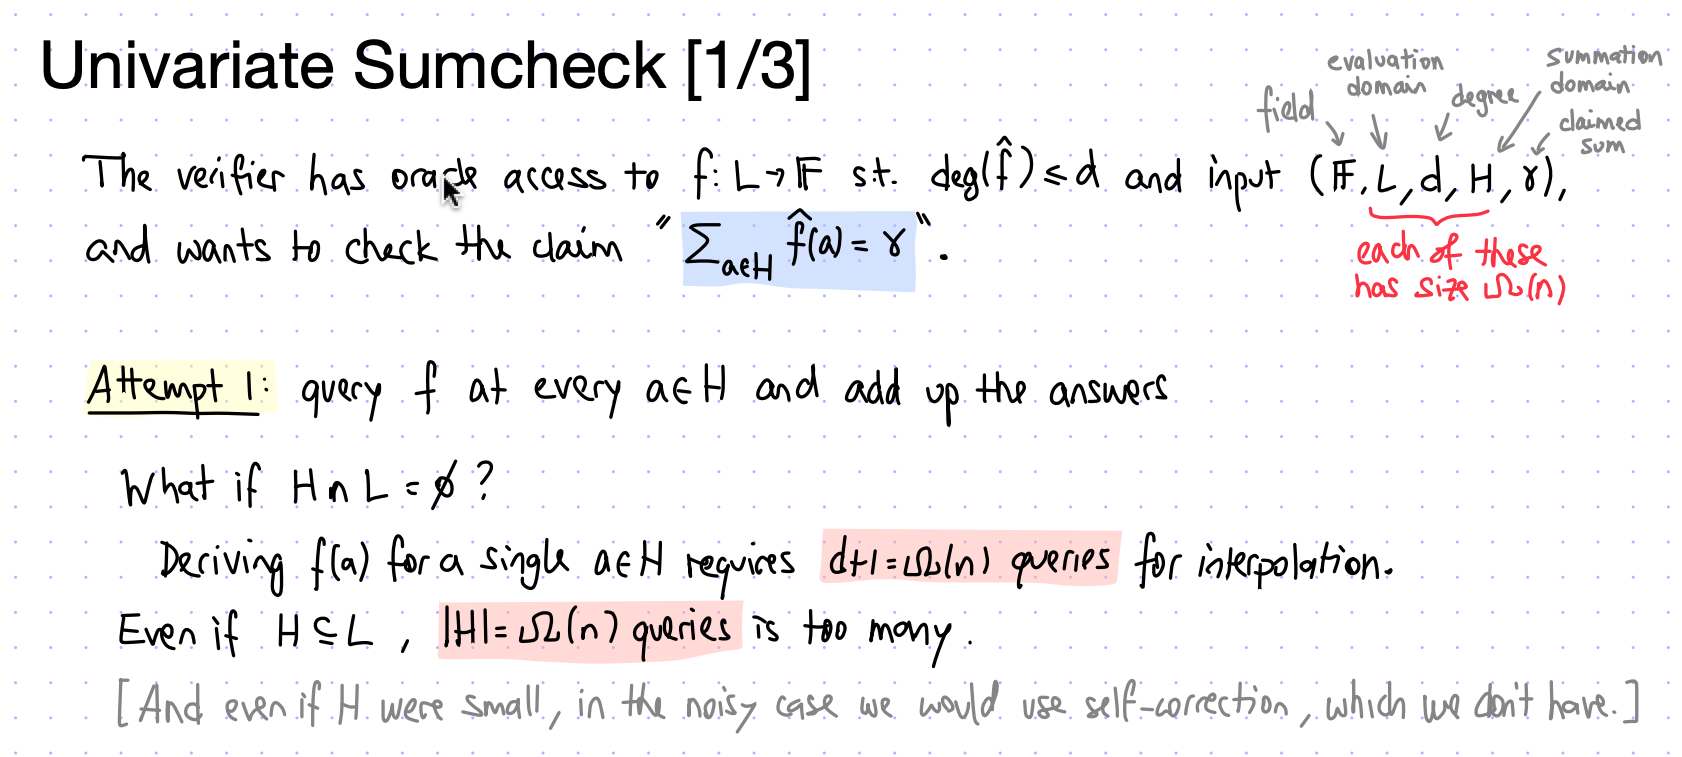 Univariate Sumcheck [1/3]
field
evaluation domain
degree
summation domain
claimed sum
The verifier has oracle access to f: L→𝔽 s.t. deg(f̂) ≤ d and input (𝔽, L, d, H, γ),
and wants to check the claim "∑_{a∈H} f̂(a) = γ".
each of these
has size Ω(n)
Attempt 1: query f at every a∈H and add up the answers
What if H∩L = ∅?
Deriving f(a) for a single a∈H requires d+1=Ω(n) queries for interpolation.
Even if H⊆L, |H|=Ω(n) queries is too many.
[And even if H were small, in the noisy case we would use self-correction, which we don't have.]